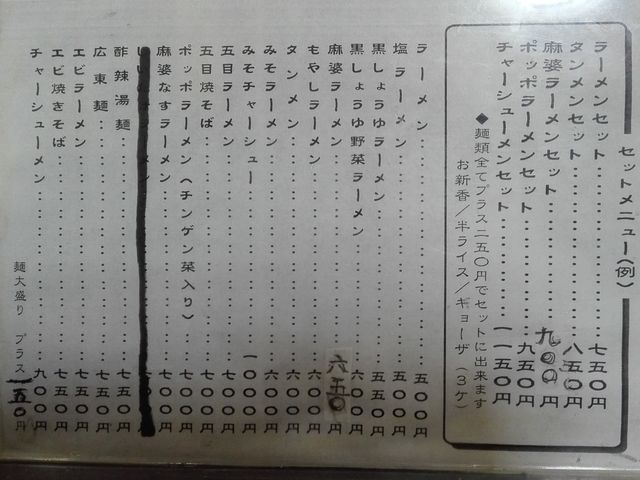 セットメニュー(例)
ラーメンセット………七五〇円
タンメンセット………八五〇円
麻婆ラーメンセット………九〇〇円
ポッポラーメンセット………九五〇円
チャーシューメンセット………一一五〇円
◆麺類全てプラス二五〇円でセットに出来ます
お新香/半ライス/ギョーザ(3ケ)
ラーメン………五〇〇円
塩ラーメン………五〇〇円
黒しょうゆラーメン………五五〇円
黒しょうゆ野菜ラーメン………六〇〇円
麻婆ラーメン………六五〇円
もやしラーメン………六〇〇円
タンメン………六〇〇円
みそラーメン………六〇〇円
みそチャーシュー………一〇〇〇円
五目ラーメン………七〇〇円
五目焼そば………七〇〇円
ポッポラーメン(チンゲン菜入り)………七〇〇円
麻婆なすラーメン………七〇〇円
酢辣湯麺………七五〇円
広東麺………七五〇円
エビラーメン………七五〇円
エビ焼きそば………七五〇円
チャーシューメン………九〇〇円
麺大盛り プラス一五〇円